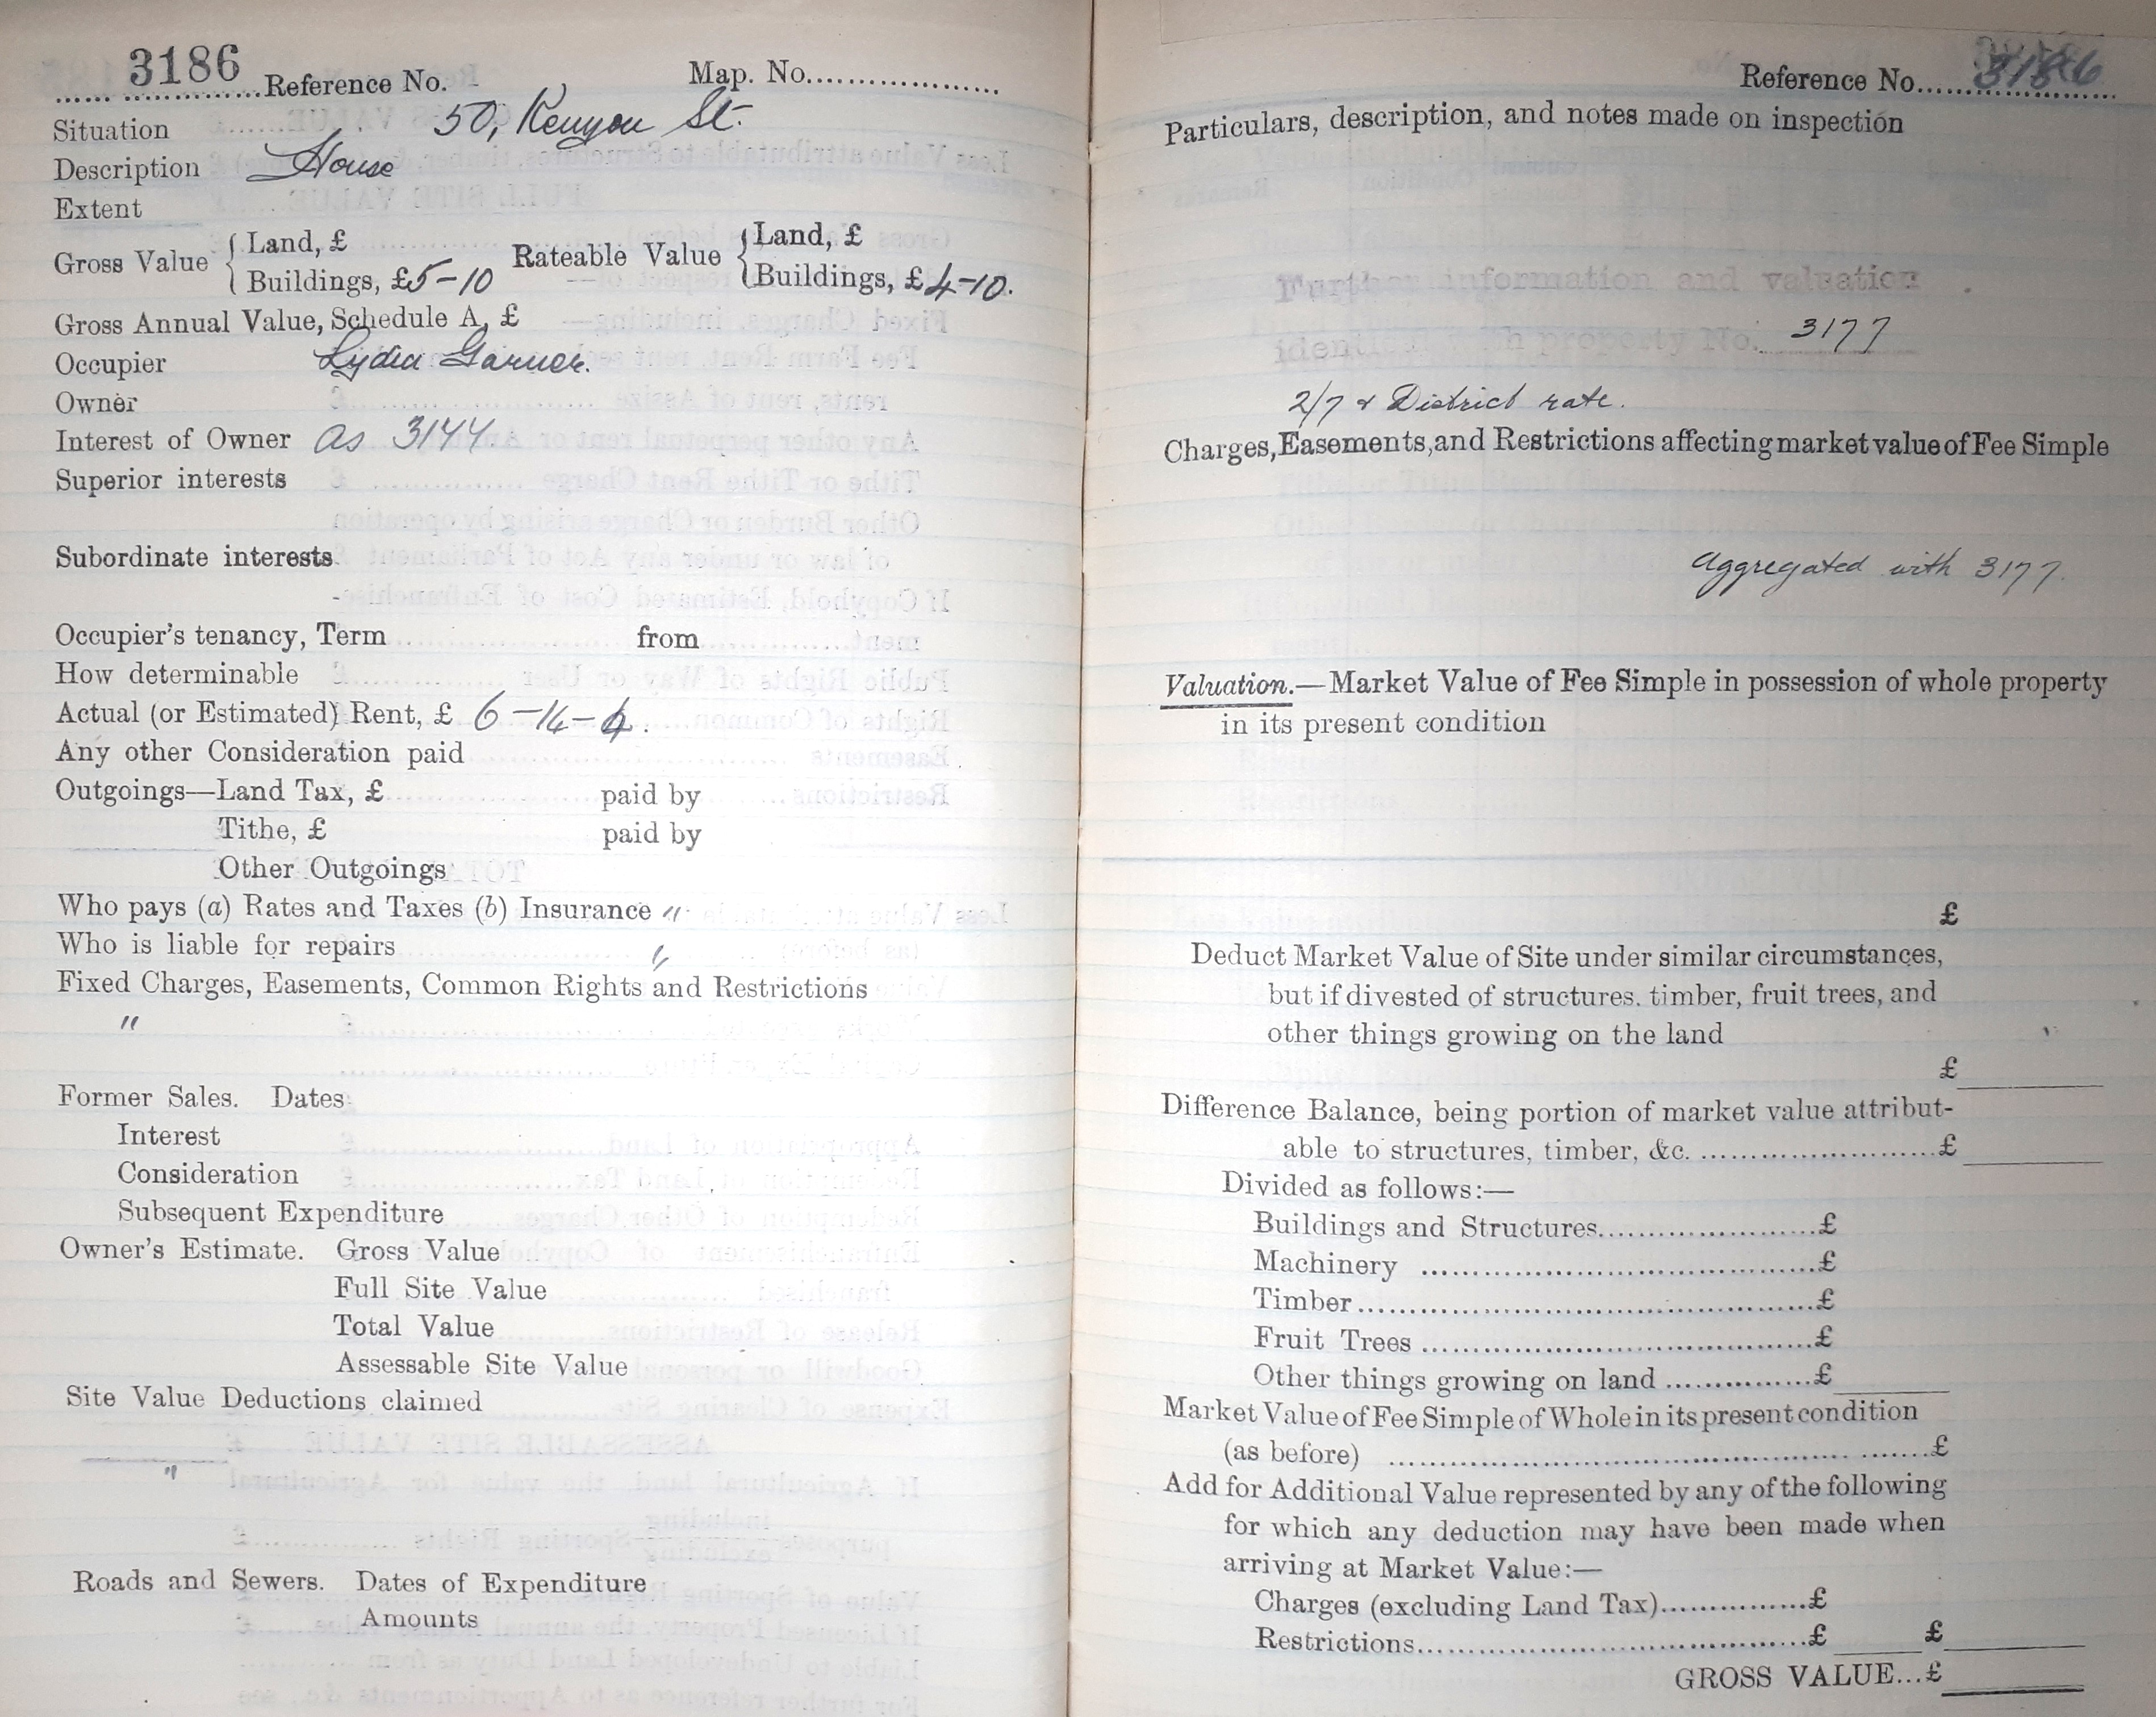 3186 Reference No. Map. No....................
Situation 50, Kenyon St.
Description House
Extent
Gross Value { Land, £ Rateable Value { Land, £
Buildings, £5-10 Buildings, £4-10.
Gross Annual Value, Schedule A, £
Occupier Lydia Garner.
Owner
Interest of Owner as 3144.
Superior interests
Subordinate interests
Occupier's tenancy, Term from
How determinable
Actual (or Estimated) Rent, £ 6-14-
Any other Consideration paid
Outgoings—Land Tax, £ paid by
Tithe, £ paid by
Other Outgoings
Who pays (a) Rates and Taxes (b) Insurance "
Who is liable for repairs "
Fixed Charges, Easements, Common Rights and Restrictions
"
Former Sales. Dates
Interest
Consideration
Subsequent Expenditure
Owner's Estimate. Gross Value
Full Site Value
Total Value
Assessable Site Value
Site Value Deductions claimed
"
Roads and Sewers. Dates of Expenditure
Amounts
Reference No....3186
Particulars, description, and notes made on inspection
Further information and valuation
identical with property No. 3177
2/7 & District rate.
Charges, Easements, and Restrictions affecting market value of Fee Simple
Aggregated with 3177.
Valuation.—Market Value of Fee Simple in possession of whole property
in its present condition
£
Deduct Market Value of Site under similar circumstances,
but if divested of structures. timber, fruit trees, and
other things growing on the land
£
Difference Balance, being portion of market value attribut-
able to structures, timber, &c. ........................£
Divided as follows:—
Buildings and Structures......................£
Machinery ........................................£
Timber..............................................£
Fruit Trees .........................................£
Other things growing on land ...............£
Market Value of Fee Simple of Whole in its present condition
(as before) ......................................................£
Add for Additional Value represented by any of the following
for which any deduction may have been made when
arriving at Market Value:—
Charges (excluding Land Tax)...............£
Restrictions.......................................£ £
GROSS VALUE...£